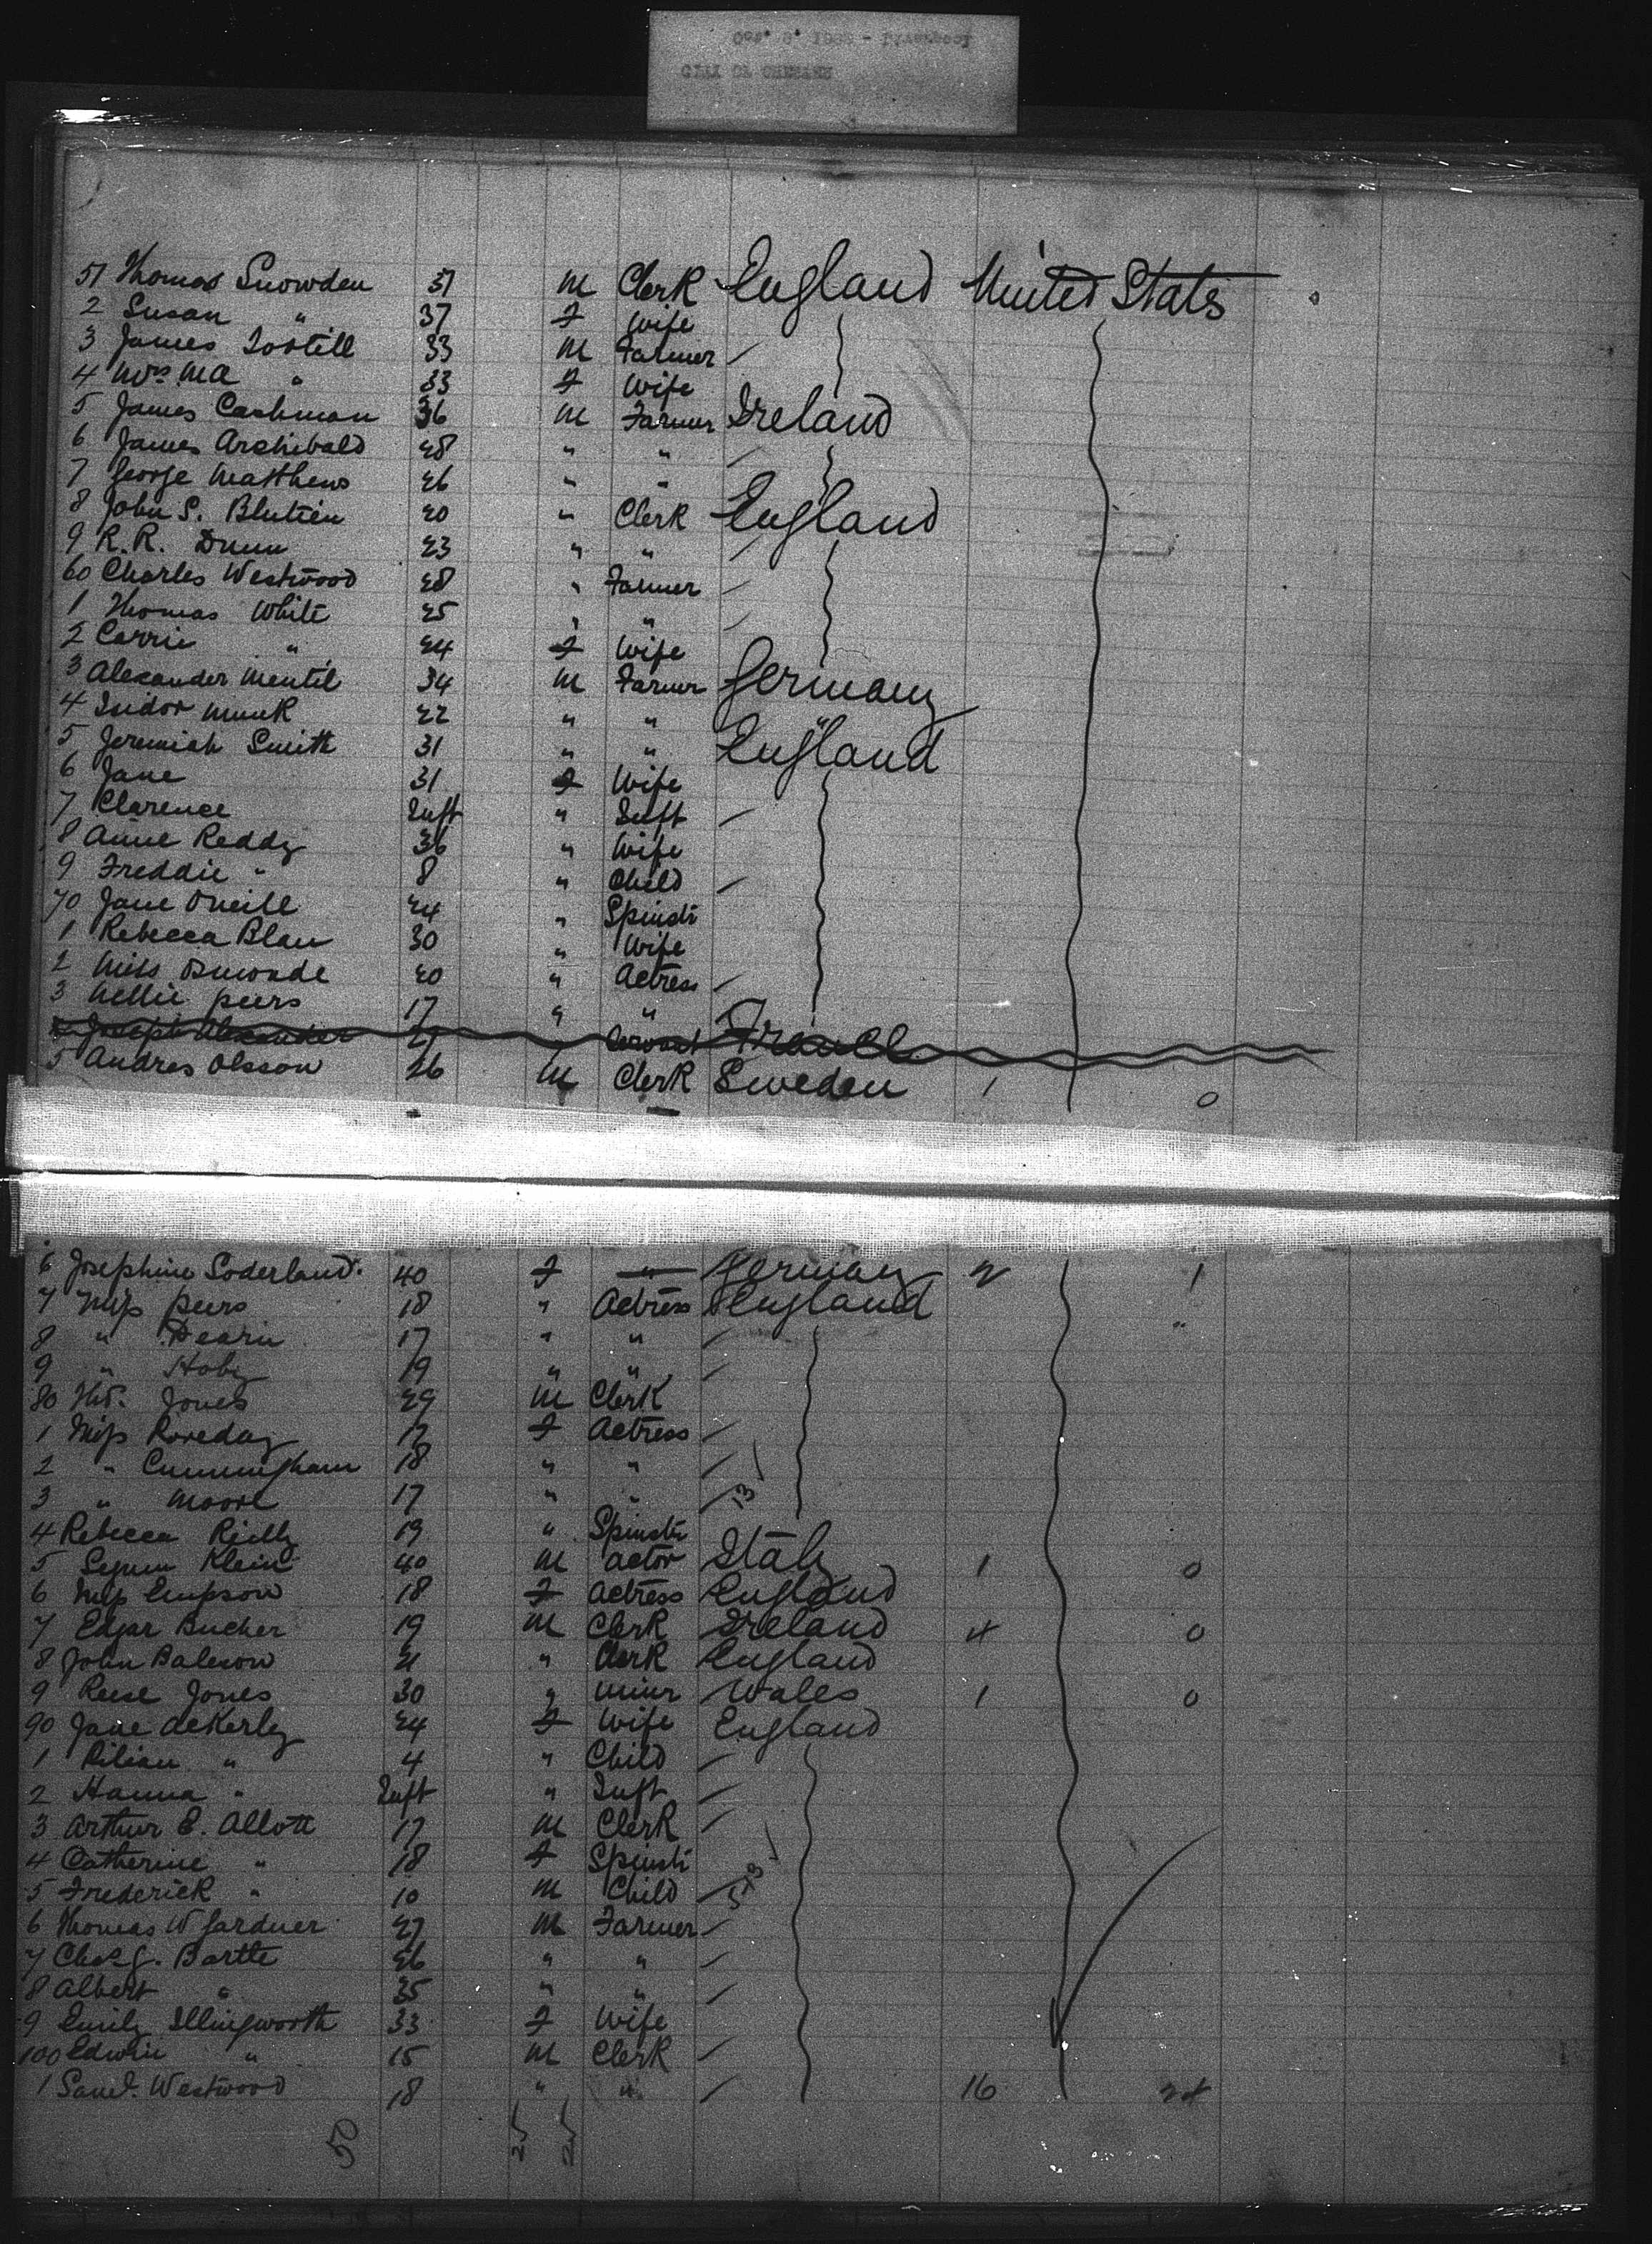 51 Thomas Snowden 37 M Clerk England United States 0
2 Susan " 37 F Wife
3 James Tootill 33 M Farmer
4 Mrs Ma " 33 F Wife
5 James Cashman 36 M Farmer Ireland
6 James Archibald 28 " "
7 George Matthews 26 " "
8 John S. 20 " Clerk England
9 R.R. Dunn 23 " "
60 Charles Westwood 28 " Farmer
1 Thomas White 25 " "
2 Carrie " 24 F Wife
3 Alexander Mentil 34 M Farmer Germany
4 Isidor Munk 22 " " "
5 Jeremiah Smith 31 " " England
6 Jane 31 F Wife
7 Clarence Inft " Inft
8 Anne Reddy 36 " Wife
9 Freddie " 8 " Child
70 Jane Oneill 24 " Spinstr
1 Rebecca Blau 30 " Wife
2 Miss 20 " Actress
3 Nellie peers 17 " "
Joseph Alexander 27 Servant French
5 Andres Olsson 26 M Clerk Sweden 1 0
6 Josephine Soderland. 40 F " Germany 2 1
7 Miss peers 18 " Actress England
8 " Dearin 17 " " "
9 " Hoby 19 " "
80 Jones 29 M Clerk
1 Miss 17 F Actress
2 " Cunningham 18 " "
3 " Moore 17 " " 13
4 Rebecca Reilly 19 " Spinstr
5 Klein 40 M actor Italy 1 0
6 Miss Empson 18 F Actress England
7 Edgar Bucher 19 M Clerk Ireland 4 0
8 John 21 " Clerk England
9 Reese Jones 30 " Miner Wales 1 0
90 Jane deKerby 24 F Wife England
1 Lilian " 4 " Child
2 Hanna " Inft " Inft
3 Arthur E. Allott 17 M Clerk
4 Catherine " 18 F Spinstr
5 Frederick " 10 M Child
6 Thomas W Gardner 27 M Farmer
7 Chas G. Bartle 26 " "
8 Albert " 35 " "
9 Emily Illingworth 33 F Wife
100 Edwin " 15 M Clerk
1 Saml. Westwood 18 " " 16 24
50 25 25